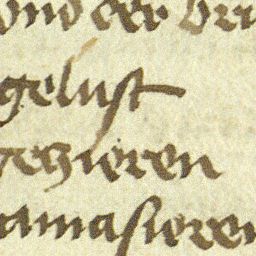 vnd der bri
gelust
gezieren
amasieren